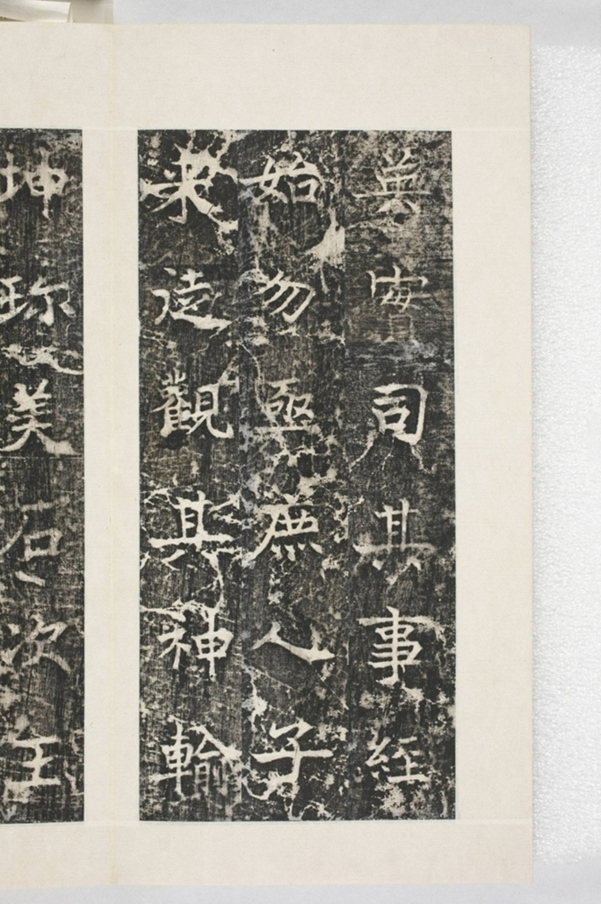 司其事經
始勿亟庶人子
來遠觀其神輸
坤珎美石次王